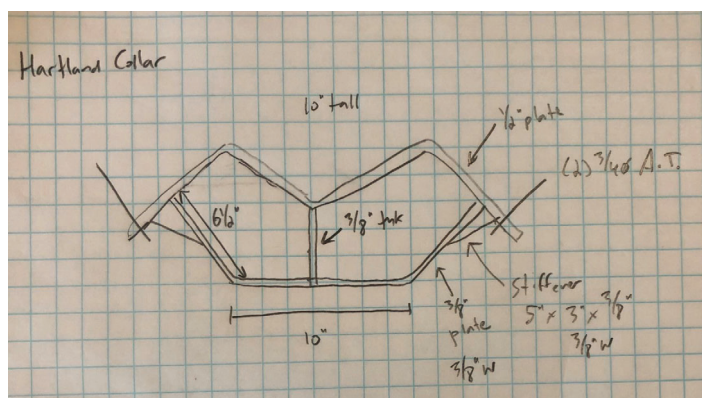 Hartland Collar
10" tall
1/2" plate
(2) 3/4ø A.T.
6 1/2"
3/8" thk
Stiffener
5" x 3" x 3/8"
3/8" w
3/8"
plate
3/8" w
10"